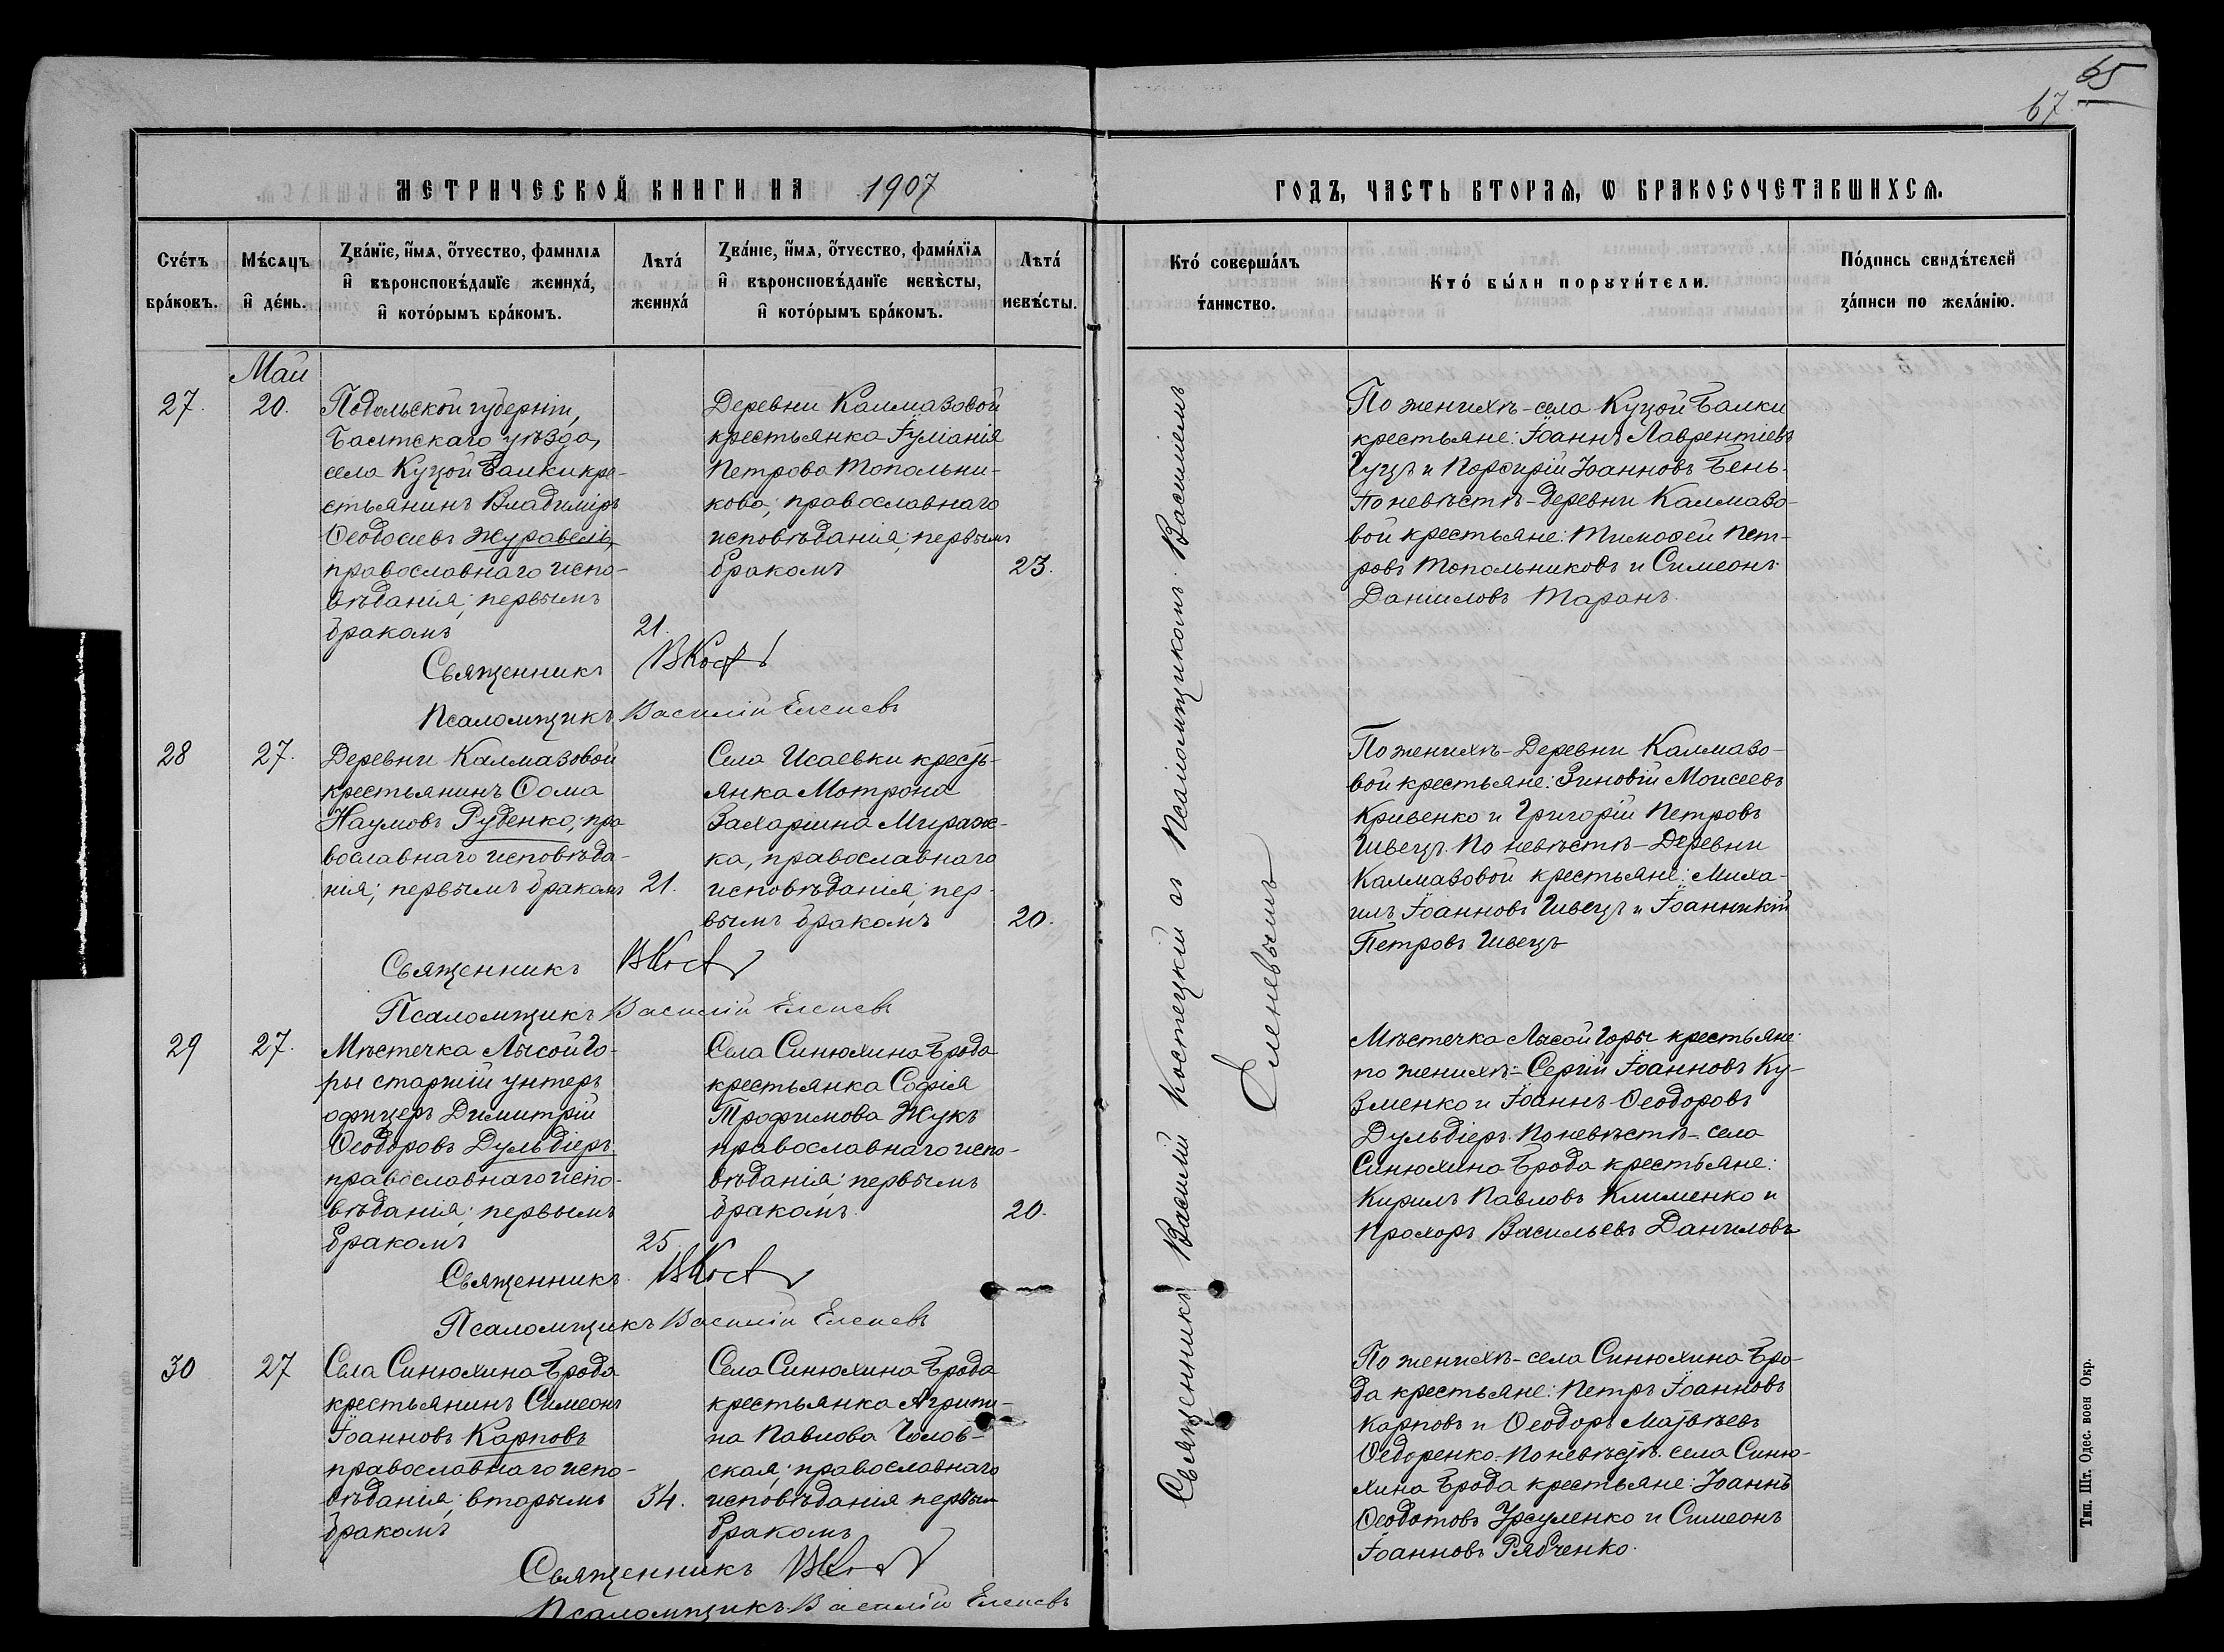 65
67
МЕТРИЧЕСКОЙ КНИГИ НА 1907
ГОДЪ, ЧАСТЬ ВТОРАѦ, Ѡ БРАКОСОЧЕТАВШИХСѦ.
Счétъ бра́ковъ.
Мѣ́сѧцъ и҆ де́нь.
Зва́нїе, и҆́мѧ, ѻ҆́тчество, фамилїѧ и҆ вѣроисповѣ́данїе жениха́, и҆ кото́рымъ бра́комъ.
Лѣта́ жениха́
Зва́нїе, и҆́мѧ, ѻ҆́тчество, фами́лїѧ и҆ вѣроисповѣ́данїе невѣ́сты, и҆ кото́рымъ бра́комъ.
Лѣта́ невѣ́сты.
Кто́ соверша́лъ та́инство.
Кто́ бы́ли порꙋчи́тели.
По́дпись свидѣ́телей за́писи по жела́нїю.
Май
27.
20.
Подольской губерніи,
Балтскаго уѣзда,
села Куцой Балки кре-
стьянинъ Владиміръ
Ѳеодосіевъ Журавель,
православнаго испо-
вѣданія; первымъ
бракомъ
21.
Деревни Калмазовой
крестьянка Іуліанія
Петрова Топольни-
кова; православнаго
исповѣданія; первымъ
бракомъ
23.
По женихѣ - села Куцой Балки
крестьяне: Іоаннъ Лаврентіевъ
Гуцъ и Порфирій Іоанновъ Бень.
По невѣстѣ - деревни Калмазо-
вой крестьяне: Тимофей Пет-
ровъ Топольниковъ и Симеонъ
Даниловъ Таранъ
Священникъ ВКост
Псаломщикъ Василій Еленевъ
28
27.
Деревни Калмазовой
крестьянинъ Ѳома
Наумовъ Руденко; пра
вославнаго исповѣда-
нія; первымъ бракомъ
21.
Села Исаевки кресть-
янка Мотрона
Захаріина Мираж-
ка, православнаго
исповѣданія; пер-
вымъ бракомъ
20.
По женихѣ - Деревни Калмазо-
вой крестьяне: Зиновій Моисеевъ
Кривенко и Григорій Петровъ
Швецъ. По невѣстѣ - Деревни
Калмазовой крестьяне: Миха-
илъ Іоанновъ Швецъ и Іоанникій
Петровъ Швецъ
Священникъ ВКост
Псаломщикъ Василій Еленевъ
29
27.
Мѣстечка Лысой Го-
ры старшій унтеръ
офицеръ Димитрій
Ѳеодоровъ Дульдіеръ
православнаго испо-
вѣданія; первымъ
бракомъ
25.
Села Синюхина Брода
крестьянка Софія
Трофимова Жукъ
православнаго испо-
вѣданія; первымъ
бракомъ.
20.
Мѣстечка Лысой Горы крестьяне:
по женихѣ - Сергій Іоанновъ Ку-
зменко и Іоаннъ Ѳеодоровъ
Дульдіеръ. По невѣстѣ - села
Синюхина Брода крестьяне:
Кирилъ Павловъ Клименко и
Прохоръ Васильевъ Даниловъ
Священникъ ВКост
Псаломщикъ Василій Еленевъ
30
27
Села Синюхина Брода
крестьянинъ Симеонъ
Іоанновъ Карповъ
православнаго испо-
вѣданія; вторымъ
бракомъ
34.
Села Синюхина Брода
крестьянка Агрипи-
на Павлова Голов-
ская; православнаго
исповѣданія первым
бракомъ
По женихѣ - села Синюхина Бро-
да крестьяне: Петръ Іоанновъ
Карповъ и Ѳеодоръ Матвѣевъ
Ѳедоренко. По невѣстѣ. села Синю-
хина Брода крестьяне: Іоаннъ
Ѳеодотовъ Урсуленко и Симеонъ
Іоанновъ Рябченко.
Священникъ ВКост
Псаломщикъ Василій Еленевъ
Священникъ Василій Костецкій съ Псаломщикомъ Василіемъ
Еленевымъ
Тип. Шт. Одес. воен Окр.